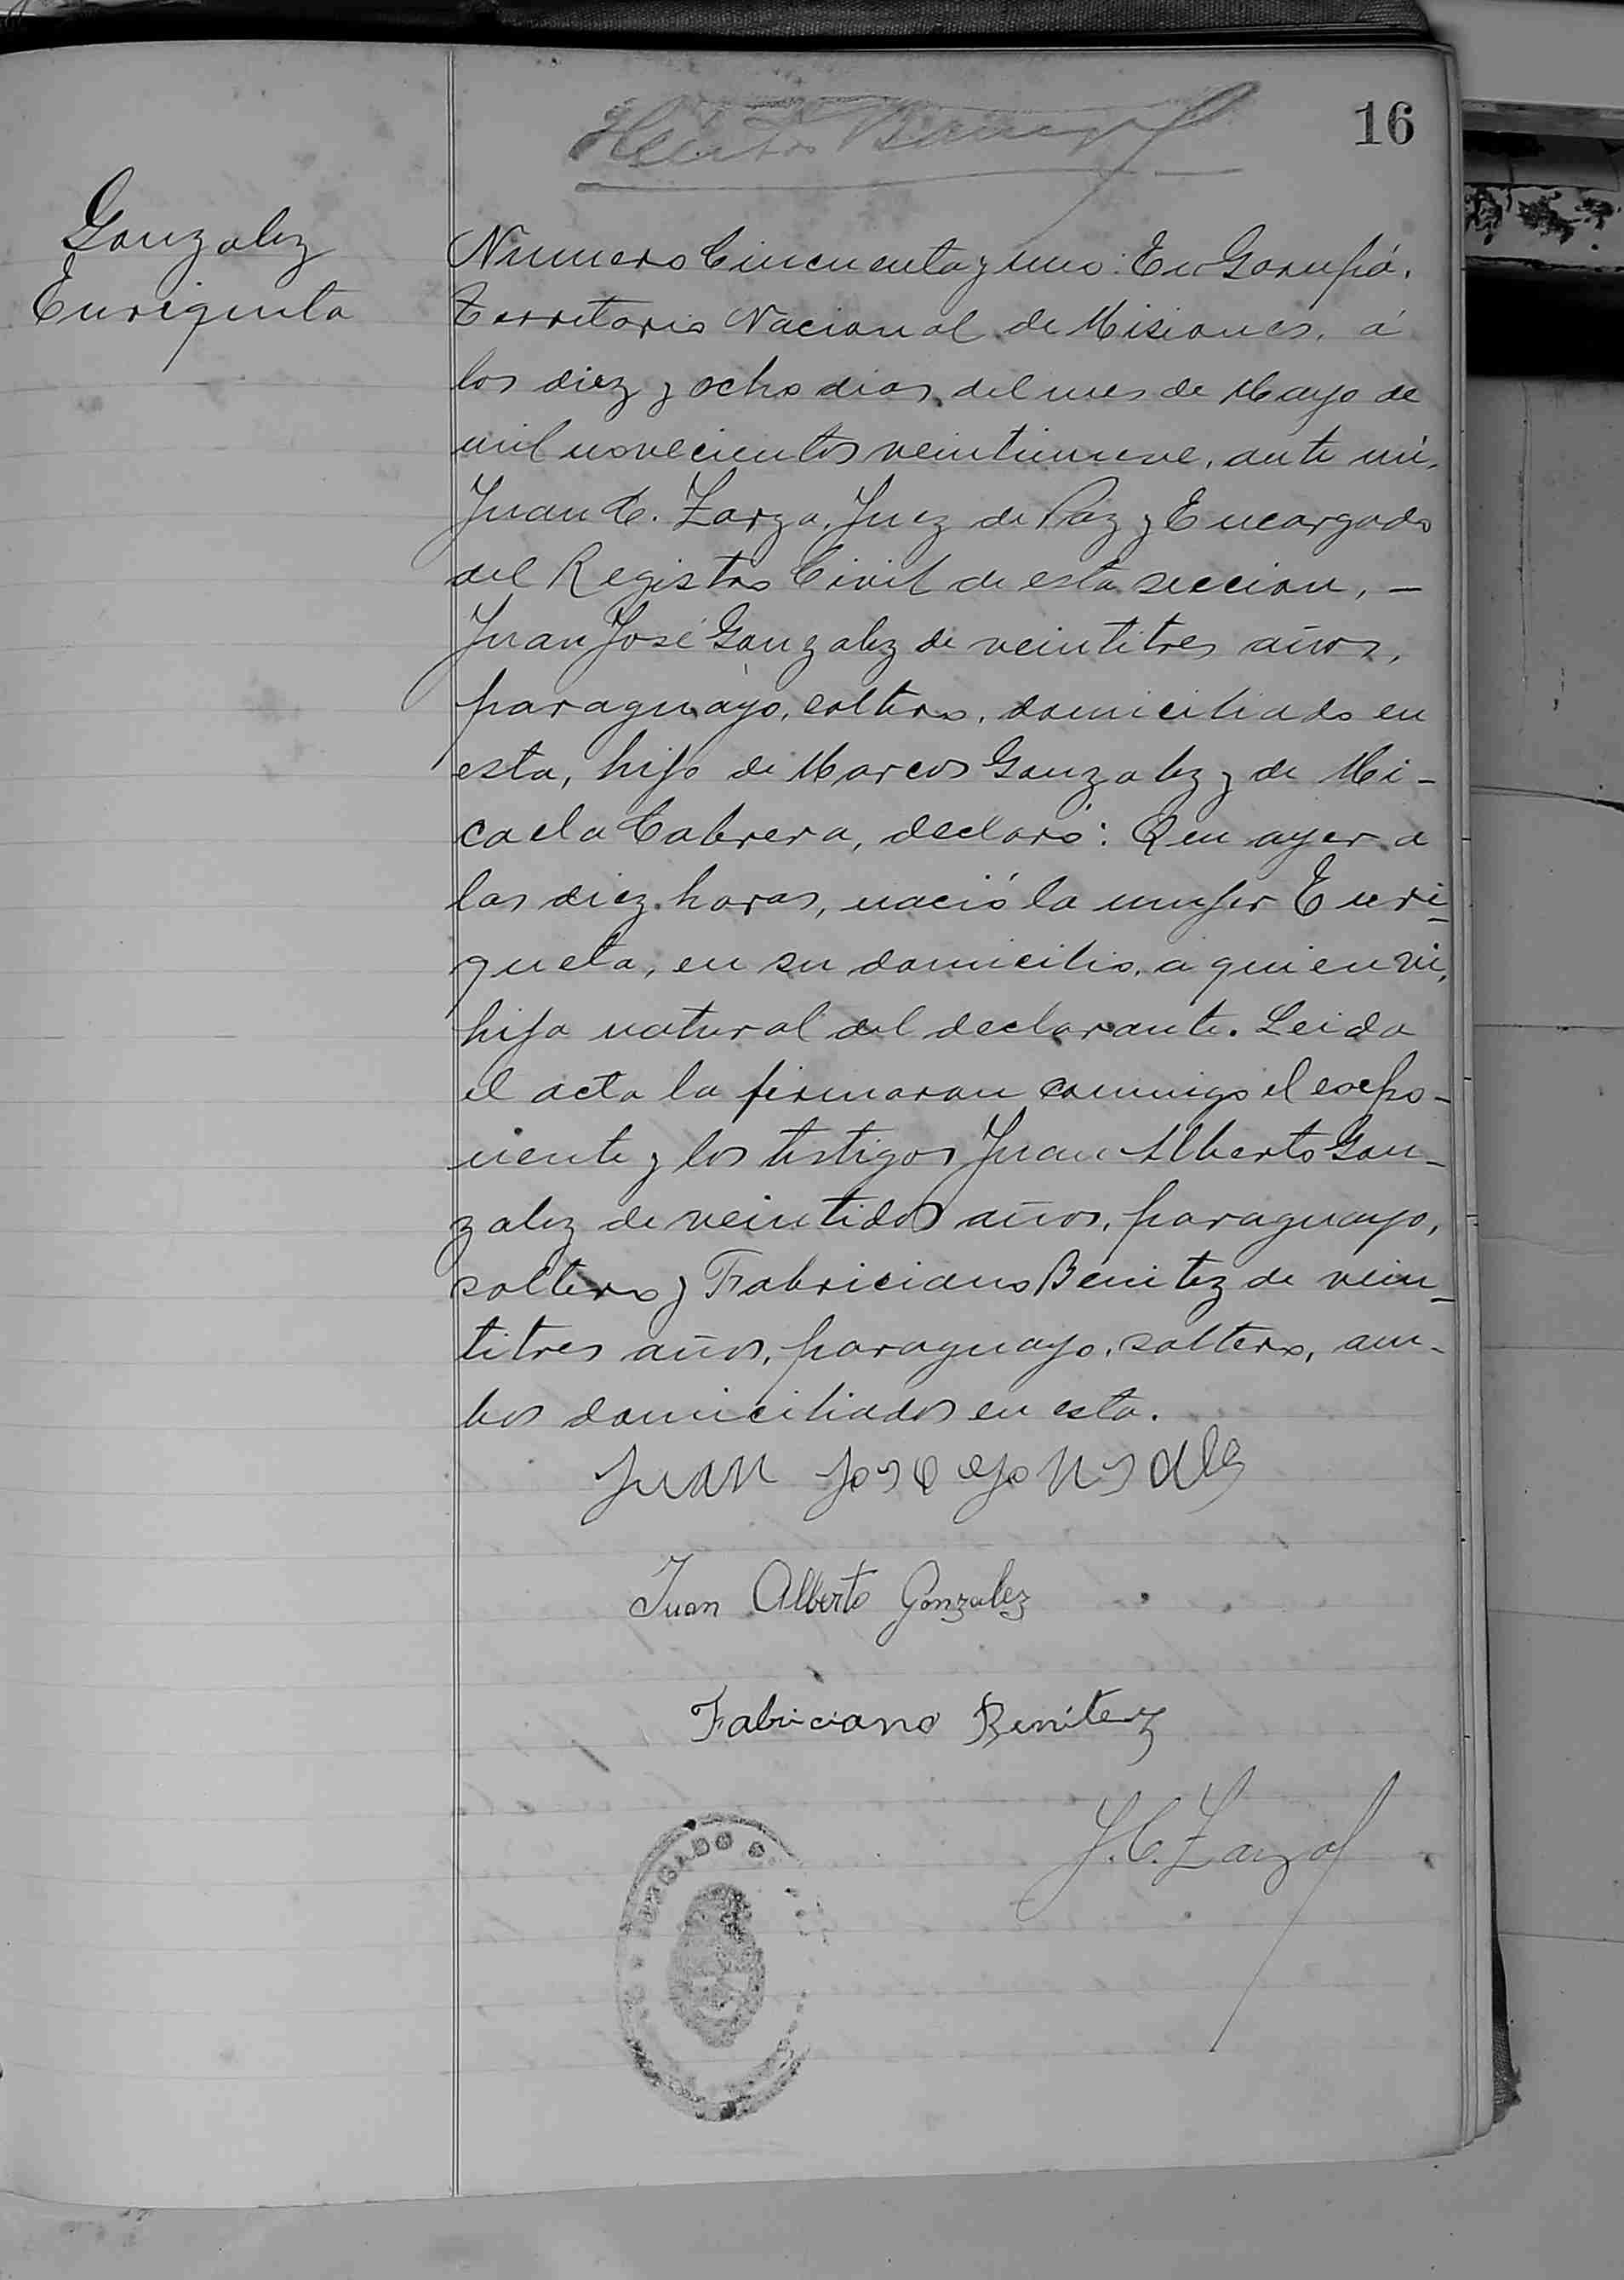 16
Gonzalez
Enriqueta
Numero Cincuenta y uno: En Garupá,
Territorio Nacional de Misiones, á
los diez y ocho dias del mes de Mayo de
mil novecientos veintinueve, ante mi,
Juan C. Zarza, Juez de Paz y Encargado
del Registro Civil de esta seccion, —
Juan José Gonzalez de veintitres años,
paraguayo, soltero, domiciliado en
esta, hijo de Marcos Gonzalez y de Mi-
caela Cabrera, declaró: Que ayer a
las diez horas, nació la mujer Enri-
queta, en su domicilio, a quien vi,
hija natural del declarante. Leida
el acta la firmaron conmigo el expo-
nente y los testigos Juan Alberto Gon-
zalez de veintidos años, paraguayo,
soltero y Fabriciano Benitez de vein-
titres años, paraguayo, soltero, am-
bos domiciliados en esta.
Juan Jose gonsales
Juan Alberto Gonzalez
Fabriciano Benitez
J. C. Zarza
JUZGADO